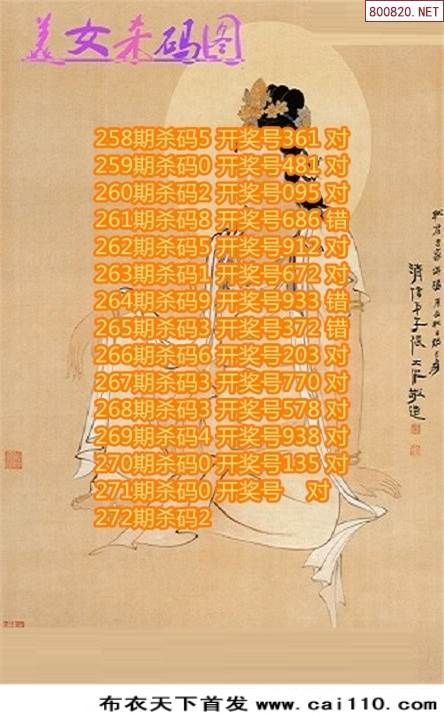 800820.NET
美女杀码图
258期杀码5 开奖号361 对
259期杀码0 开奖号481 对
260期杀码2 开奖号095 对
261期杀码8 开奖号686 错
262期杀码5 开奖号912 对
263期杀码1 开奖号672 对
264期杀码9 开奖号933 错
265期杀码3 开奖号372 错
266期杀码6 开奖号203 对
267期杀码3 开奖号770 对
268期杀码3 开奖号578 对
269期杀码4 开奖号938 对
270期杀码0 开奖号135 对
271期杀码0 开奖号 对
272期杀码2
布衣天下首发 www.cai110.com